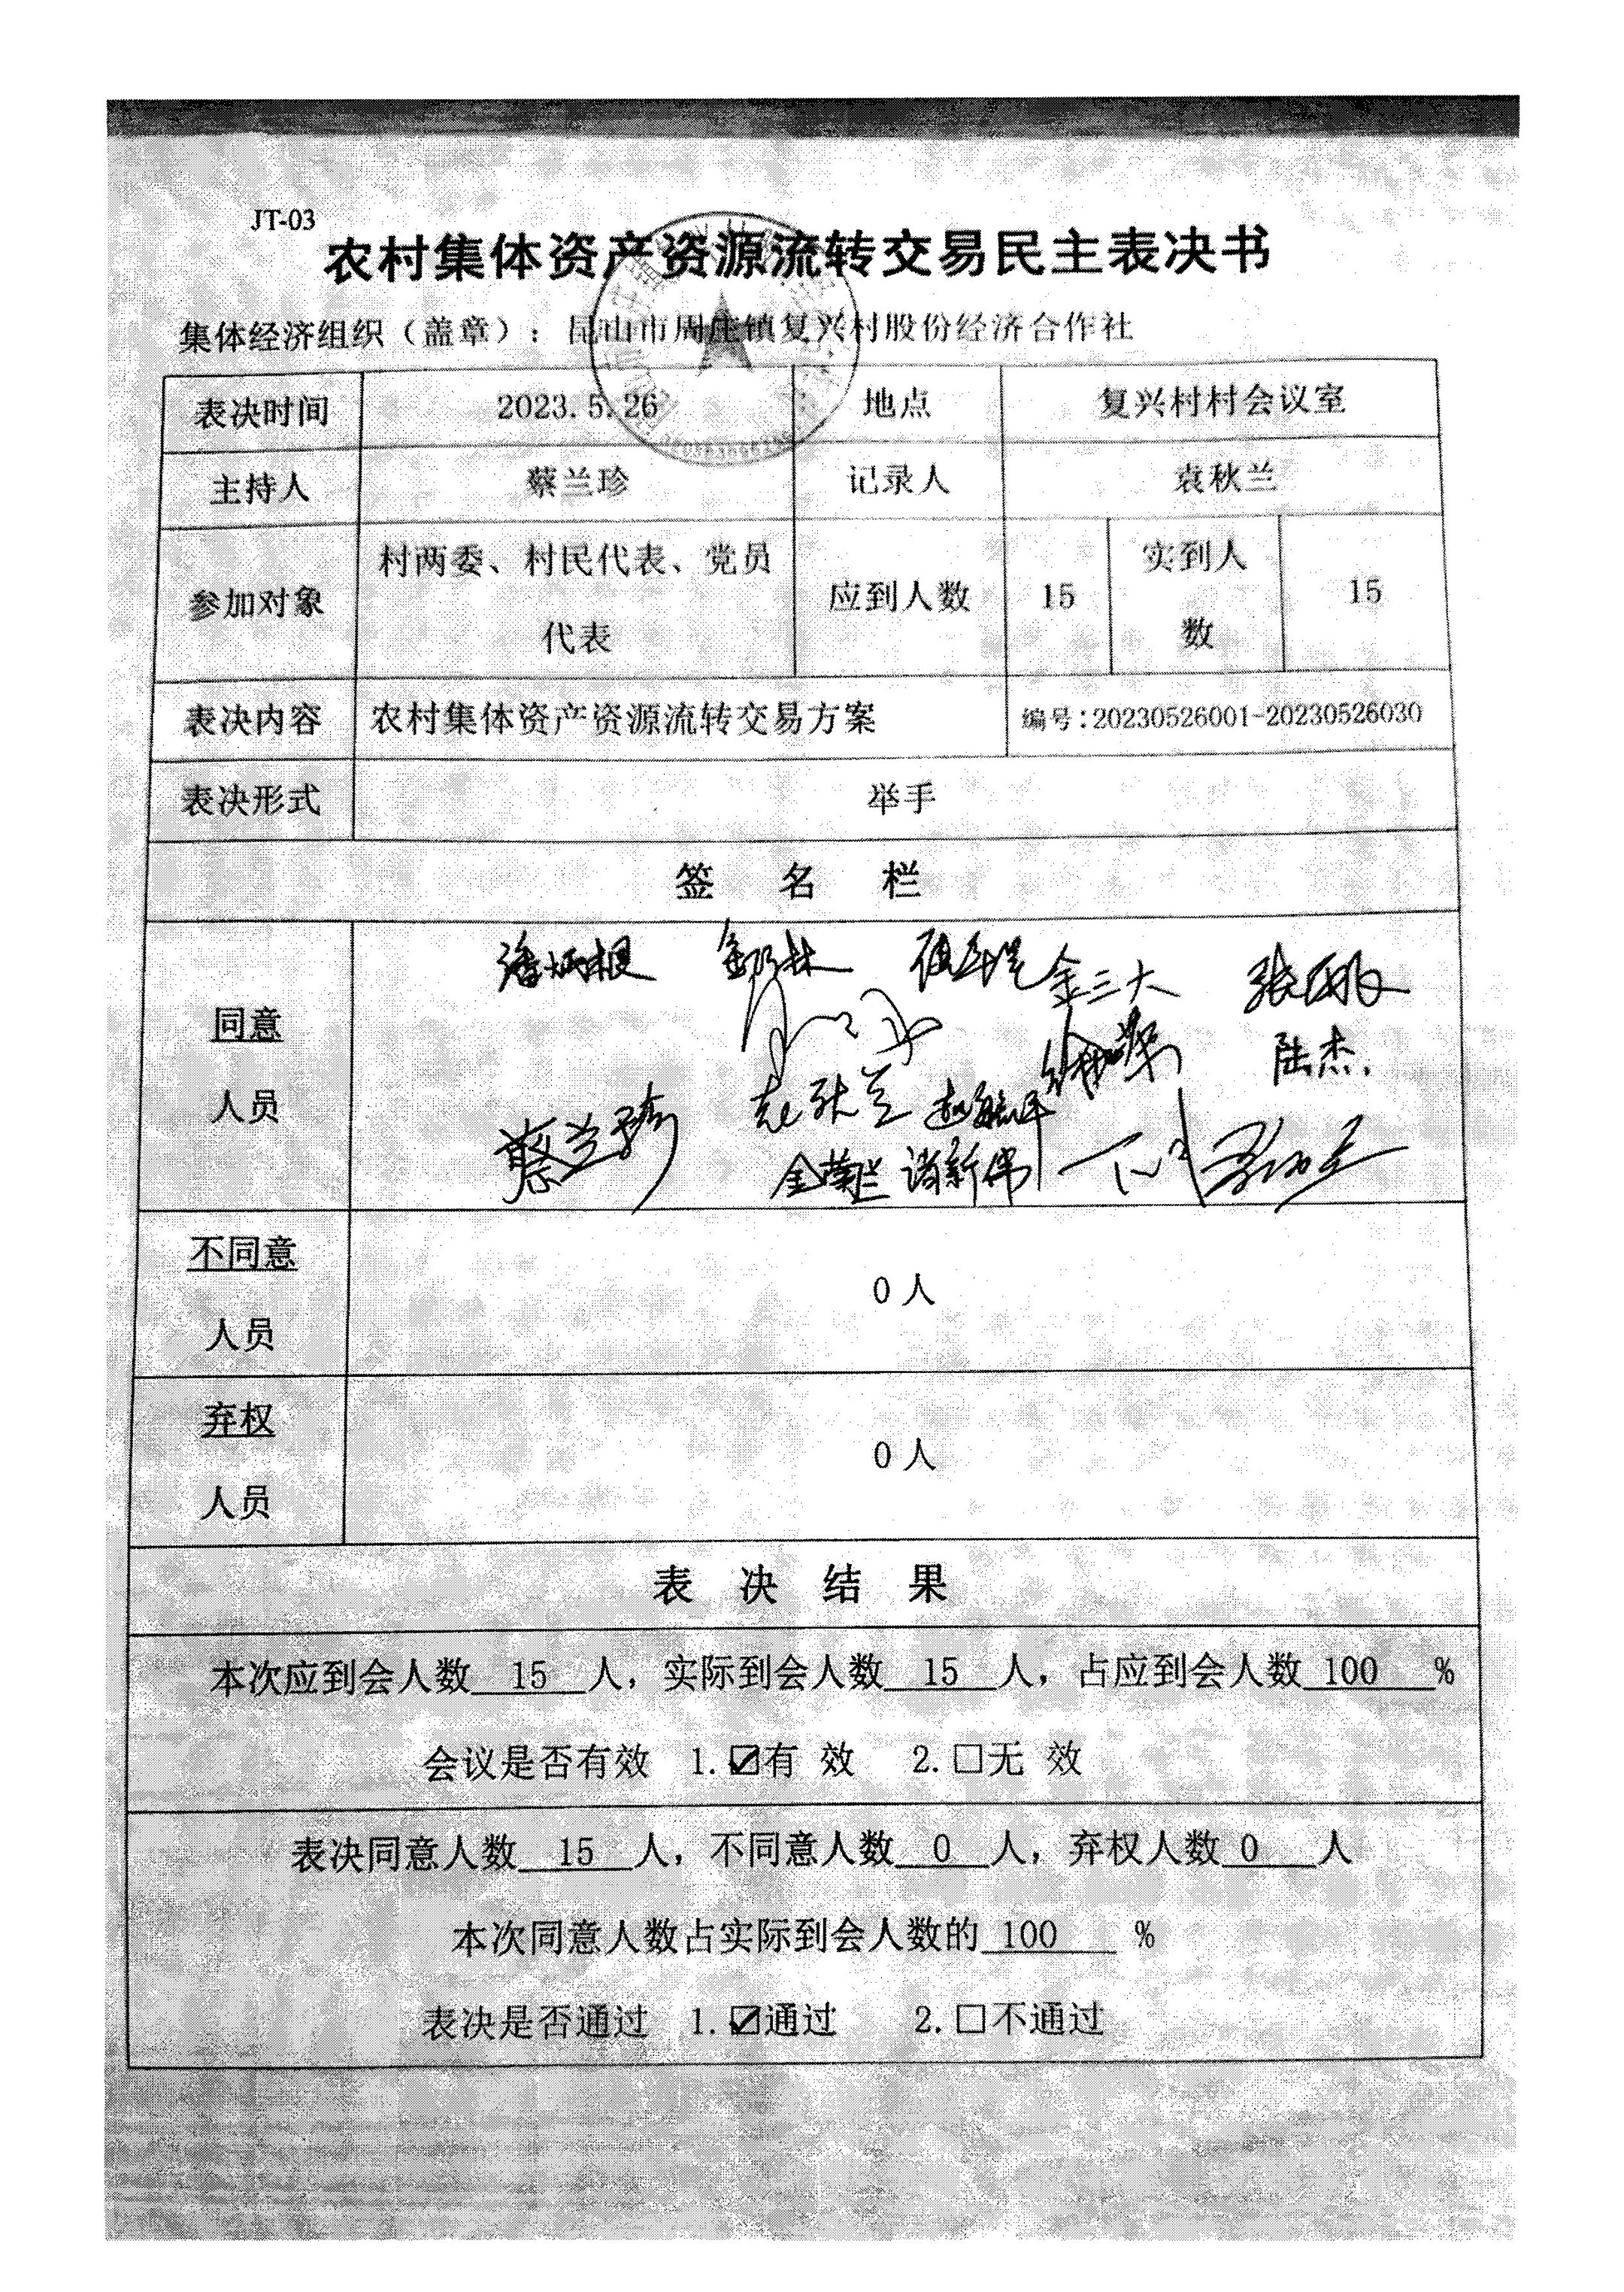 JT-03
农村集体资产资源流转交易民主表决书
集体经济组织（盖章）：昆山市周庄镇复兴村股份经济合作社
表决时间 2023.5.26 地点 复兴村村会议室
主持人 蔡兰珍 记录人 袁秋兰
参加对象 村两委、村民代表、党员代表 应到人数 15 实到人数 15
表决内容 农村集体资产资源流转交易方案 编号:20230526001-20230526030
表决形式 举手
签 名 栏
同意人员
潘炳根 金三大
陆杰
蔡兰珍 袁秋兰
金菊兰
不同意人员 0 人
弃权人员 0 人
表 决 结 果
本次应到会人数 15 人，实际到会人数 15 人，占应到会人数 100 %
会议是否有效 1.☑有 效 2.☐无 效
表决同意人数 15 人，不同意人数 0 人，弃权人数 0 人
本次同意人数占实际到会人数的 100 %
表决是否通过 1.☑通过 2.☐不通过